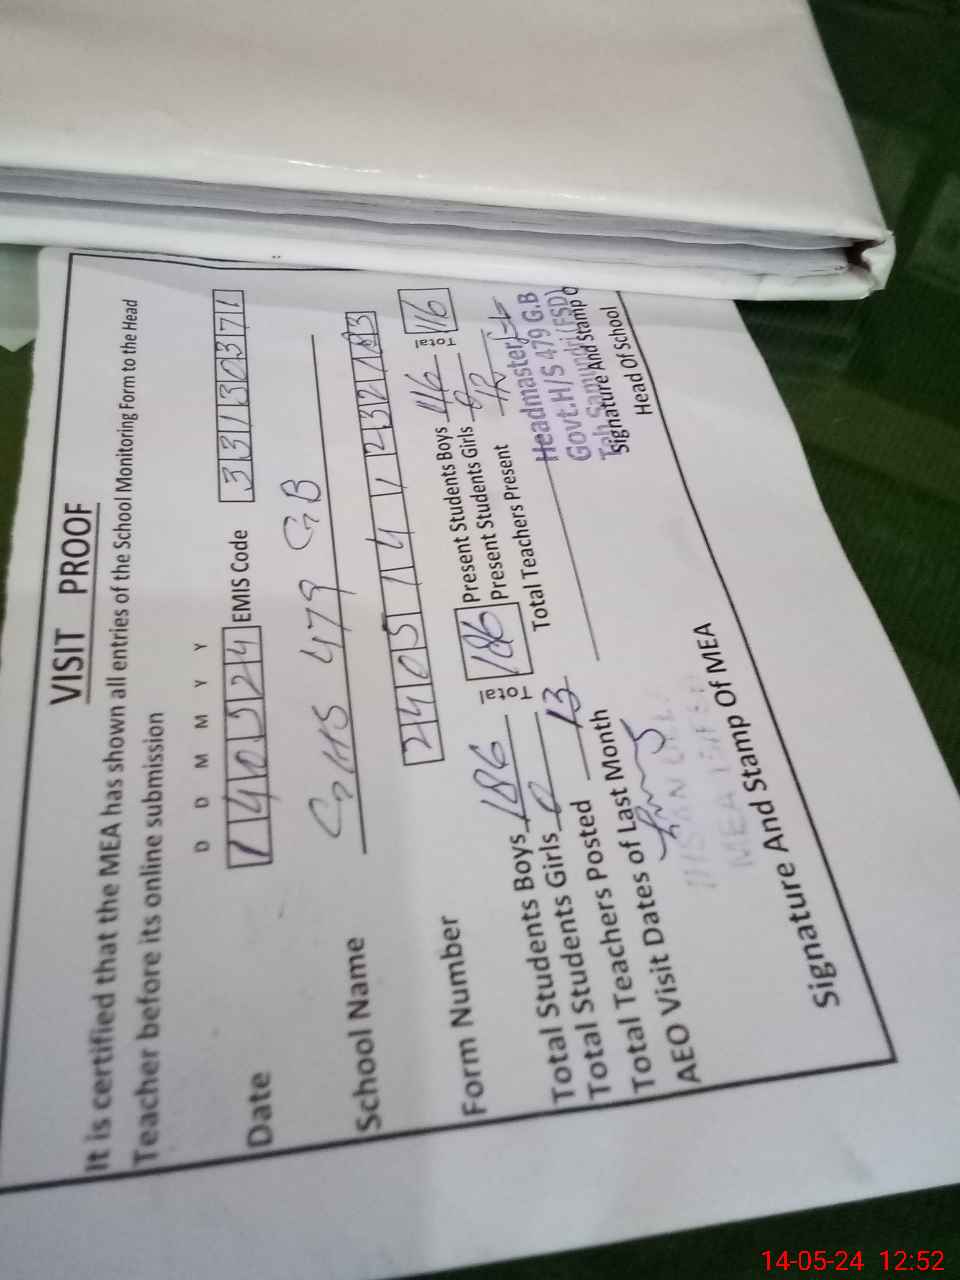 VISIT PROOF
It is certified that the MEA has shown all entries of the School Monitoring Form to the Head
Teacher before its online submission
D D M M Y Y
Date 140524 EMIS Code 33130371
School Name GHS 479 GB
Form Number
Total Students Boys 186 Total 186 Present Students Boys 116 Total 116
Total Students Girls 0 Present Students Girls 0
Total Teachers Posted 13 Total Teachers Present 12
Total Teachers of Last Month
AEO Visit Dates of
Headmaster
Govt.H/S 479 G.B
Teh Samundri (FSD)
MEA
Signature And Stamp Of MEA
Signature And Stamp O
Head Of School
14-05-24 12:52